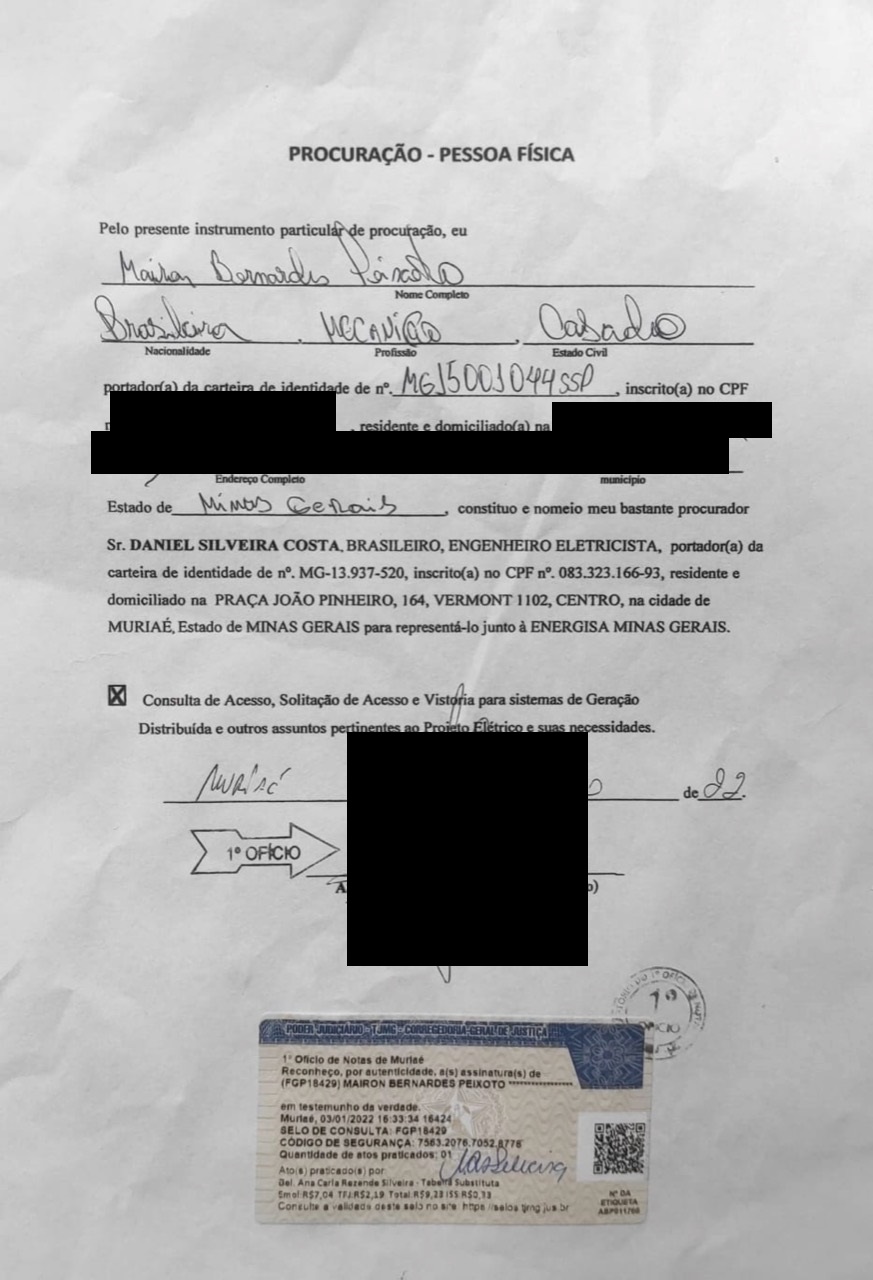 PROCURAÇÃO - PESSOA FÍSICA
Pelo presente instrumento particular de procuração, eu
Mairon Bernardes Peixoto
Nome Completo
Brasileira, MECANICO, Casado
Nacionalidade Profissão Estado Civil
portador(a) da carteira de identidade de nº. MG15001044SSP, inscrito(a) no CPF
, residente e domiciliado(a) na
Endereço Completo município
Estado de Minas Gerais, constituo e nomeio meu bastante procurador
Sr. DANIEL SILVEIRA COSTA, BRASILEIRO, ENGENHEIRO ELETRICISTA, portador(a) da
carteira de identidade de nº. MG-13.937-520, inscrito(a) no CPF nº. 083.323.166-93, residente e
domiciliado na PRAÇA JOÃO PINHEIRO, 164, VERMONT 1102, CENTRO, na cidade de
MURIAÉ, Estado de MINAS GERAIS para representá-lo junto à ENERGISA MINAS GERAIS.
Consulta de Acesso, Solitação de Acesso e Vistoria para sistemas de Geração
Distribuída e outros assuntos pertinentes ao Projeto Elétrico e suas necessidades.
Muriaé de 22.
1º OFÍCIO
1º
PODER JUDICIÁRIO - TJMG - CORREGEDORIA-GERAL DE JUSTIÇA
1º Ofício de Notas de Muriaé
Reconheço, por autenticidade, a(s) assinatura(s) de
(FGP18429) MAIRON BERNARDES PEIXOTO ***************
em testemunho da verdade.
Muriaé, 03/01/2022 16:33:34 16424
SELO DE CONSULTA: FGP18429
CÓDIGO DE SEGURANÇA: 7563.2076.7052.8776
Quantidade de atos praticados: 01
Ato(s) praticado(s) por:
Bel. Ana Carla Rezende Silveira - Tabeliã Substituta
Emol:R$7,04 TFJ:R$2,19 Total:R$9,23 ISS:R$0,33
Consulte a validade deste selo no site: https://selos.tjmg.jus.br
Nº DA
ETIQUETA